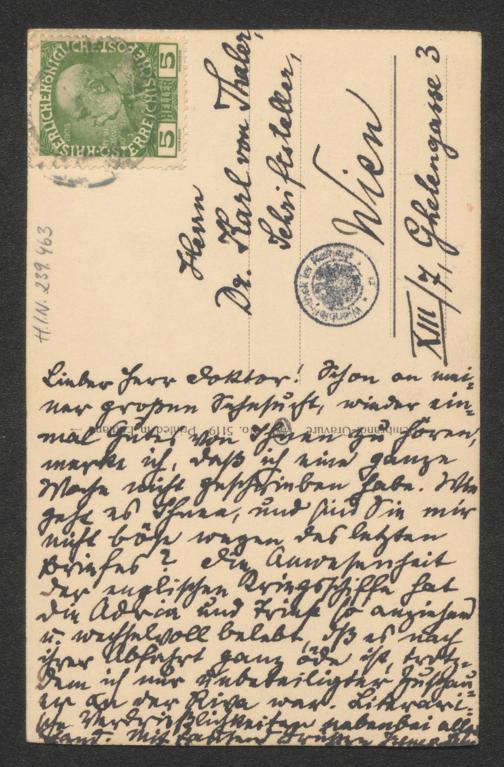 KAISERLICHE KÖNIGLICHE
ÖSTERREICHISCHE POST
5 HELLER 5
Herrn
Dr. Karl von Thaler,
Schriftsteller,
Wien
XIII/7, Ghelengasse 3
H.I.N. 239.463
Co. 5119. Printed in
Lieber Herr Doktor! Schon an mei-
ner großen Sehnsucht, wieder ein-
mal Gutes von Ihnen zu hören,
merke ich, daß ich eine ganze
Woche nicht geschrieben habe. Wie
geht es Ihnen, und sind Sie mir
nicht böse wegen des letzten
Briefes? Die Anwesenheit
der englischen Kriegsschiffe hat
die Adria und Triest so anziehend
u. wechselvoll belebt, daß es nach
ihrer Abfahrt ganz öde ist, trotz-
dem ich nur unbeteiligter Zuschau-
er an der Riva war. Literari-
sche Verdrießlichkeiten nebenbei aller-
hand. Mit tausend Grüßen